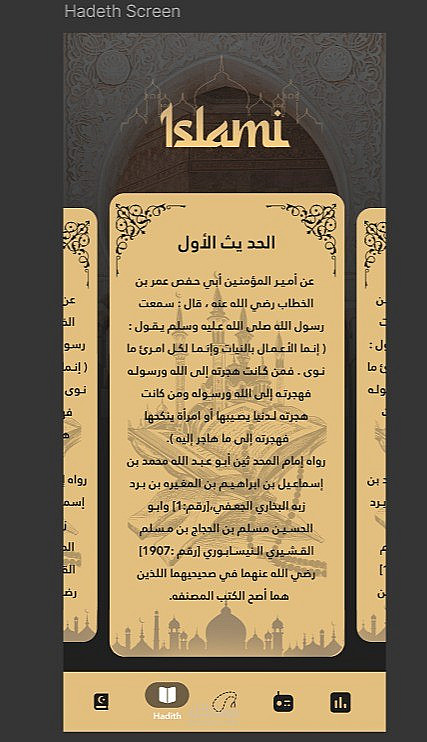 Hadeth Screen
Islami
الحديث الأول
عن أمير المؤمنين أبي حفص عمر بن
الخطاب رضي الله عنه ، قال : سمعت
رسول الله صلى الله عليه وسلم يقول :
( إنما الأعمال بالنيات وإنما لكل امرئ ما
نوى . فمن كانت هجرته إلى الله ورسوله
فهجرته إلى الله ورسوله ومن كانت
هجرته لدنيا يصيبها أو امرأة ينكحها
فهجرته إلى ما هاجر إليه ).
رواه إمام المحد ثين أبو عبد الله محمد بن
إسماعيل بن ابراهيم بن المغيره بن برد
زبه البخاري الجعفي،[رقم:1] وابو
الحسين مسلم بن الحجاج بن مسلم
القشيري النيسابوري [رقم :1907]
رضي الله عنهما في صحيحيهما اللذين
هما أصح الكتب المصنفه.
Hadith